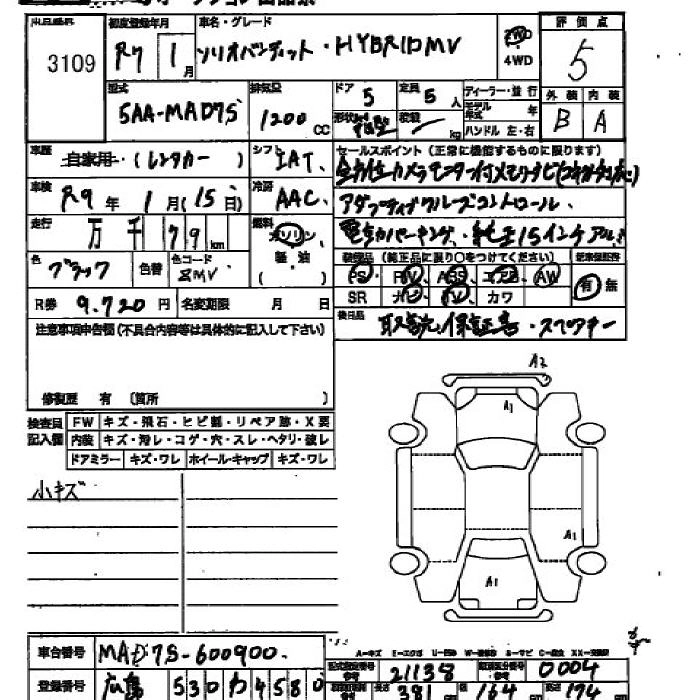 3109
初度登録年月 R7 1月
車名・グレード ソリオバンディット・HYBRIDMV
2WD 4WD
評価点 5
型式 5AA-MAD7S
排気量 1200 CC
ドア 5
定員 5人
積載 kg
ディーラー・並行
モデル年式 年
ハンドル 左・右
外装 B
内装 A
車歴 自家用・(レンタカー)
シフト IAT
セールスポイント (正常に機能するものに限ります)
車検 R9年1月(15日)
冷房 AAC
全方位カメラモニター付メモリナビ
アダプティブクルーズコントロール、
走行 万 千 79 km
燃料 ガソリン・軽油 ( )
電動パーキング、純正15インチアルミ
色 ブラック
色替
色コード ZMV
装備品 (純正品に限り○をつけてください)
PS PW ABS エアB AW
SR ナビ TV カワ
有 無
R券 9.720円
名変期限 月 日
後日品 取説、保証書・スペアキー
注意事項申告欄 (不具合内容等は具体的に記入して下さい)
修復歴 有 (箇所 )
検査員記入欄
FW キズ・飛石・ヒビ割・リペア跡・X要
内装 キズ・汚レ・コゲ・穴・スレ・ヘタリ・破レ
ドアミラー キズ・ワレ ホイール・キャップ キズ・ワレ
小キズ
A2
A1
A1
A1
車台番号 MAD7S-600900
登録番号 広島 530 わ 4580
21138
0004
長さ 381
164
高さ 174